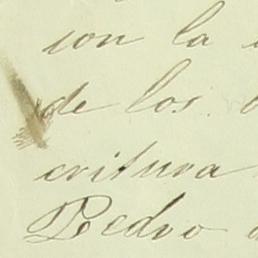 ion la
de los
critura
Pedro